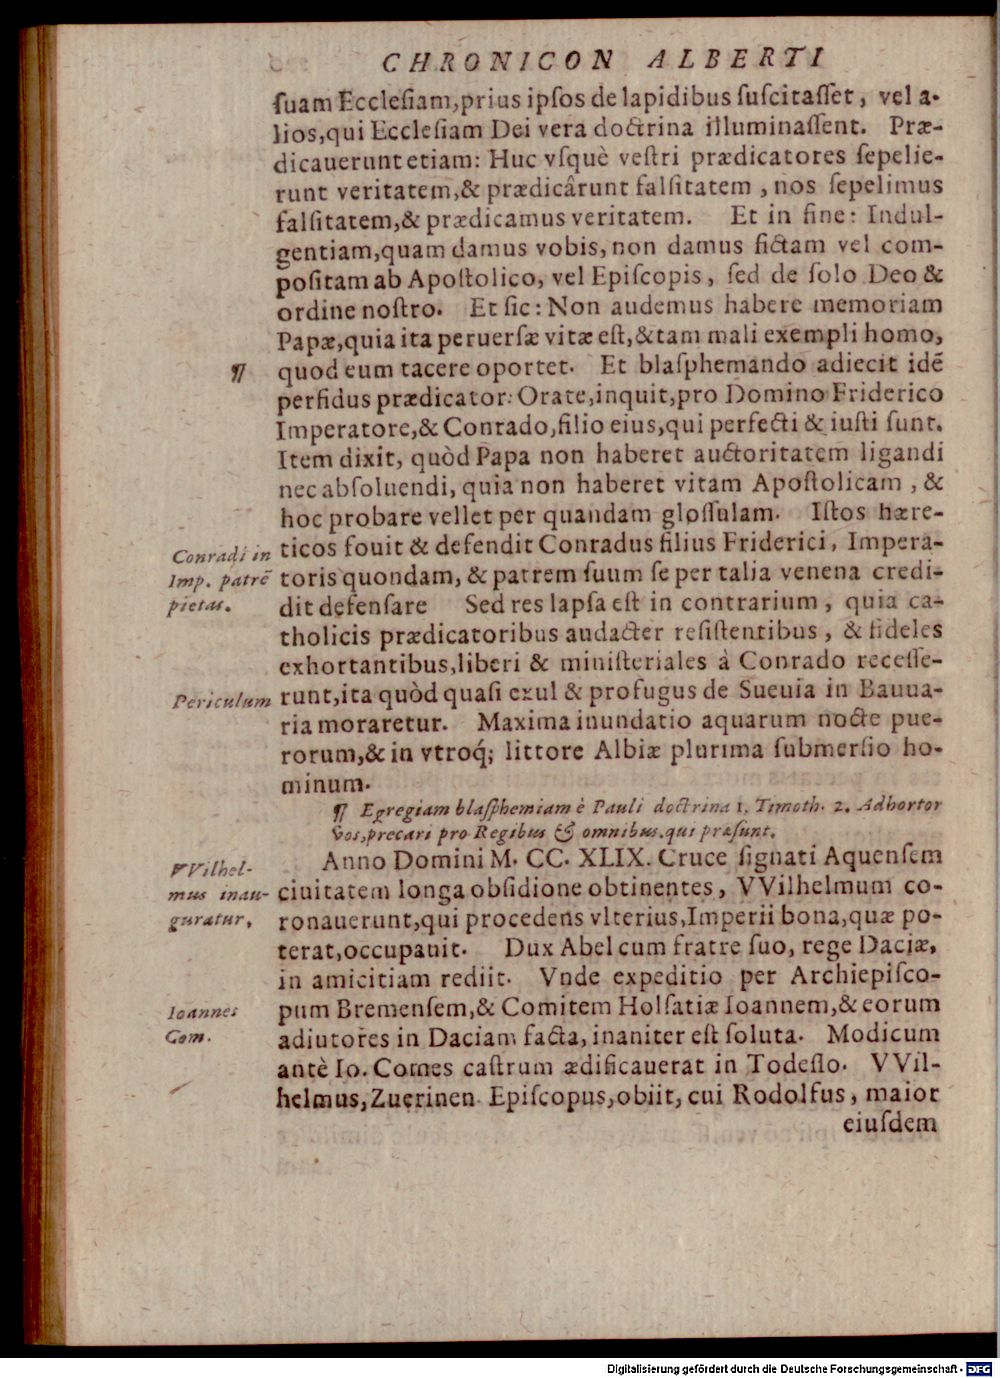 CHRONICON ALBERTI
ſuam Eccleſiam,prius ipſos de lapidibus ſuſcitaſſet, vel a-
lios,qui Eccleſiam Dei vera doctrina illuminaſſent. Præ-
dicauerunt etiam: Huc vſquè veſtri prædicatores ſepelie-
runt veritatem,& prædicârunt falſitatem, nos ſepelimus
falſitatem,& prædicamus veritatem. Et in fine: Indul-
gentiam,quam damus vobis, non damus fictam vel com-
poſitam ab Apoſtolico, vel Epiſcopis, ſed de ſolo Deo &
ordine noſtro. Et ſic: Non audemus habere memoriam
Papæ,quia ita peruerſæ vitæ eſt,&tam mali exempli homo,
¶ quod eum tacere oportet. Et blaſphemando adiecit idẽ
perfidus prædicator: Orate,inquit,pro Domino Friderico
Imperatore,& Conrado,filio eius,qui perfecti & iuſti ſunt.
Item dixit, quòd Papa non haberet auctoritatem ligandi
nec abſoluendi, quia non haberet vitam Apoſtolicam, &
hoc probare vellet per quandam gloſſulam. Iſtos hære-
Conradi in
ticos fouit & defendit Conradus filius Friderici, Impera-
Imp. patrẽ
toris quondam, & patrem ſuum ſe per talia venena credi-
pietas.
dit defenſare Sed res lapſa eſt in contrarium, quia ca-
tholicis prædicatoribus audacter reſiſtentibus, & fideles
exhortantibus,liberi & miniſteriales à Conrado receſſe-
Periculum
runt,ita quòd quaſi exul & profugus de Sueuia in Bauua-
ria moraretur. Maxima inundatio aquarum nocte pue-
rorum,& in vtroq́; littore Albiæ plurima ſubmerſio ho-
minum.
¶ Egregiam blaſphemiam è Pauli doctrina 1. Timoth. 2. Adhortor
vos,precari pro Regibus & omnibus.qui præſunt.
Anno Domini M. CC. XLIX. Cruce ſignati Aquenſem
VVilhel-
mus inau-
ciuitatem longa obſidione obtinentes, VVilhelmum co-
guratur,
ronauerunt,qui procedens vlterius,Imperii bona,quæ po-
terat,occupauit. Dux Abel cum fratre ſuo, rege Daciæ,
in amicitiam rediit. Vnde expeditio per Archiepiſco-
Ioannes
pum Bremenſem,& Comitem Holſatiæ Ioannem,& eorum
Com.
adiutores in Daciam facta, inaniter eſt ſoluta. Modicum
antè Io. Comes caſtrum ædificauerat in Todeſlo. VVil-
helmus,Zuerinen. Epiſcopus,obiit, cui Rodolfus, maior
eiuſdem
Digitalisierung gefördert durch die Deutsche Forschungsgemeinschaft - DFG